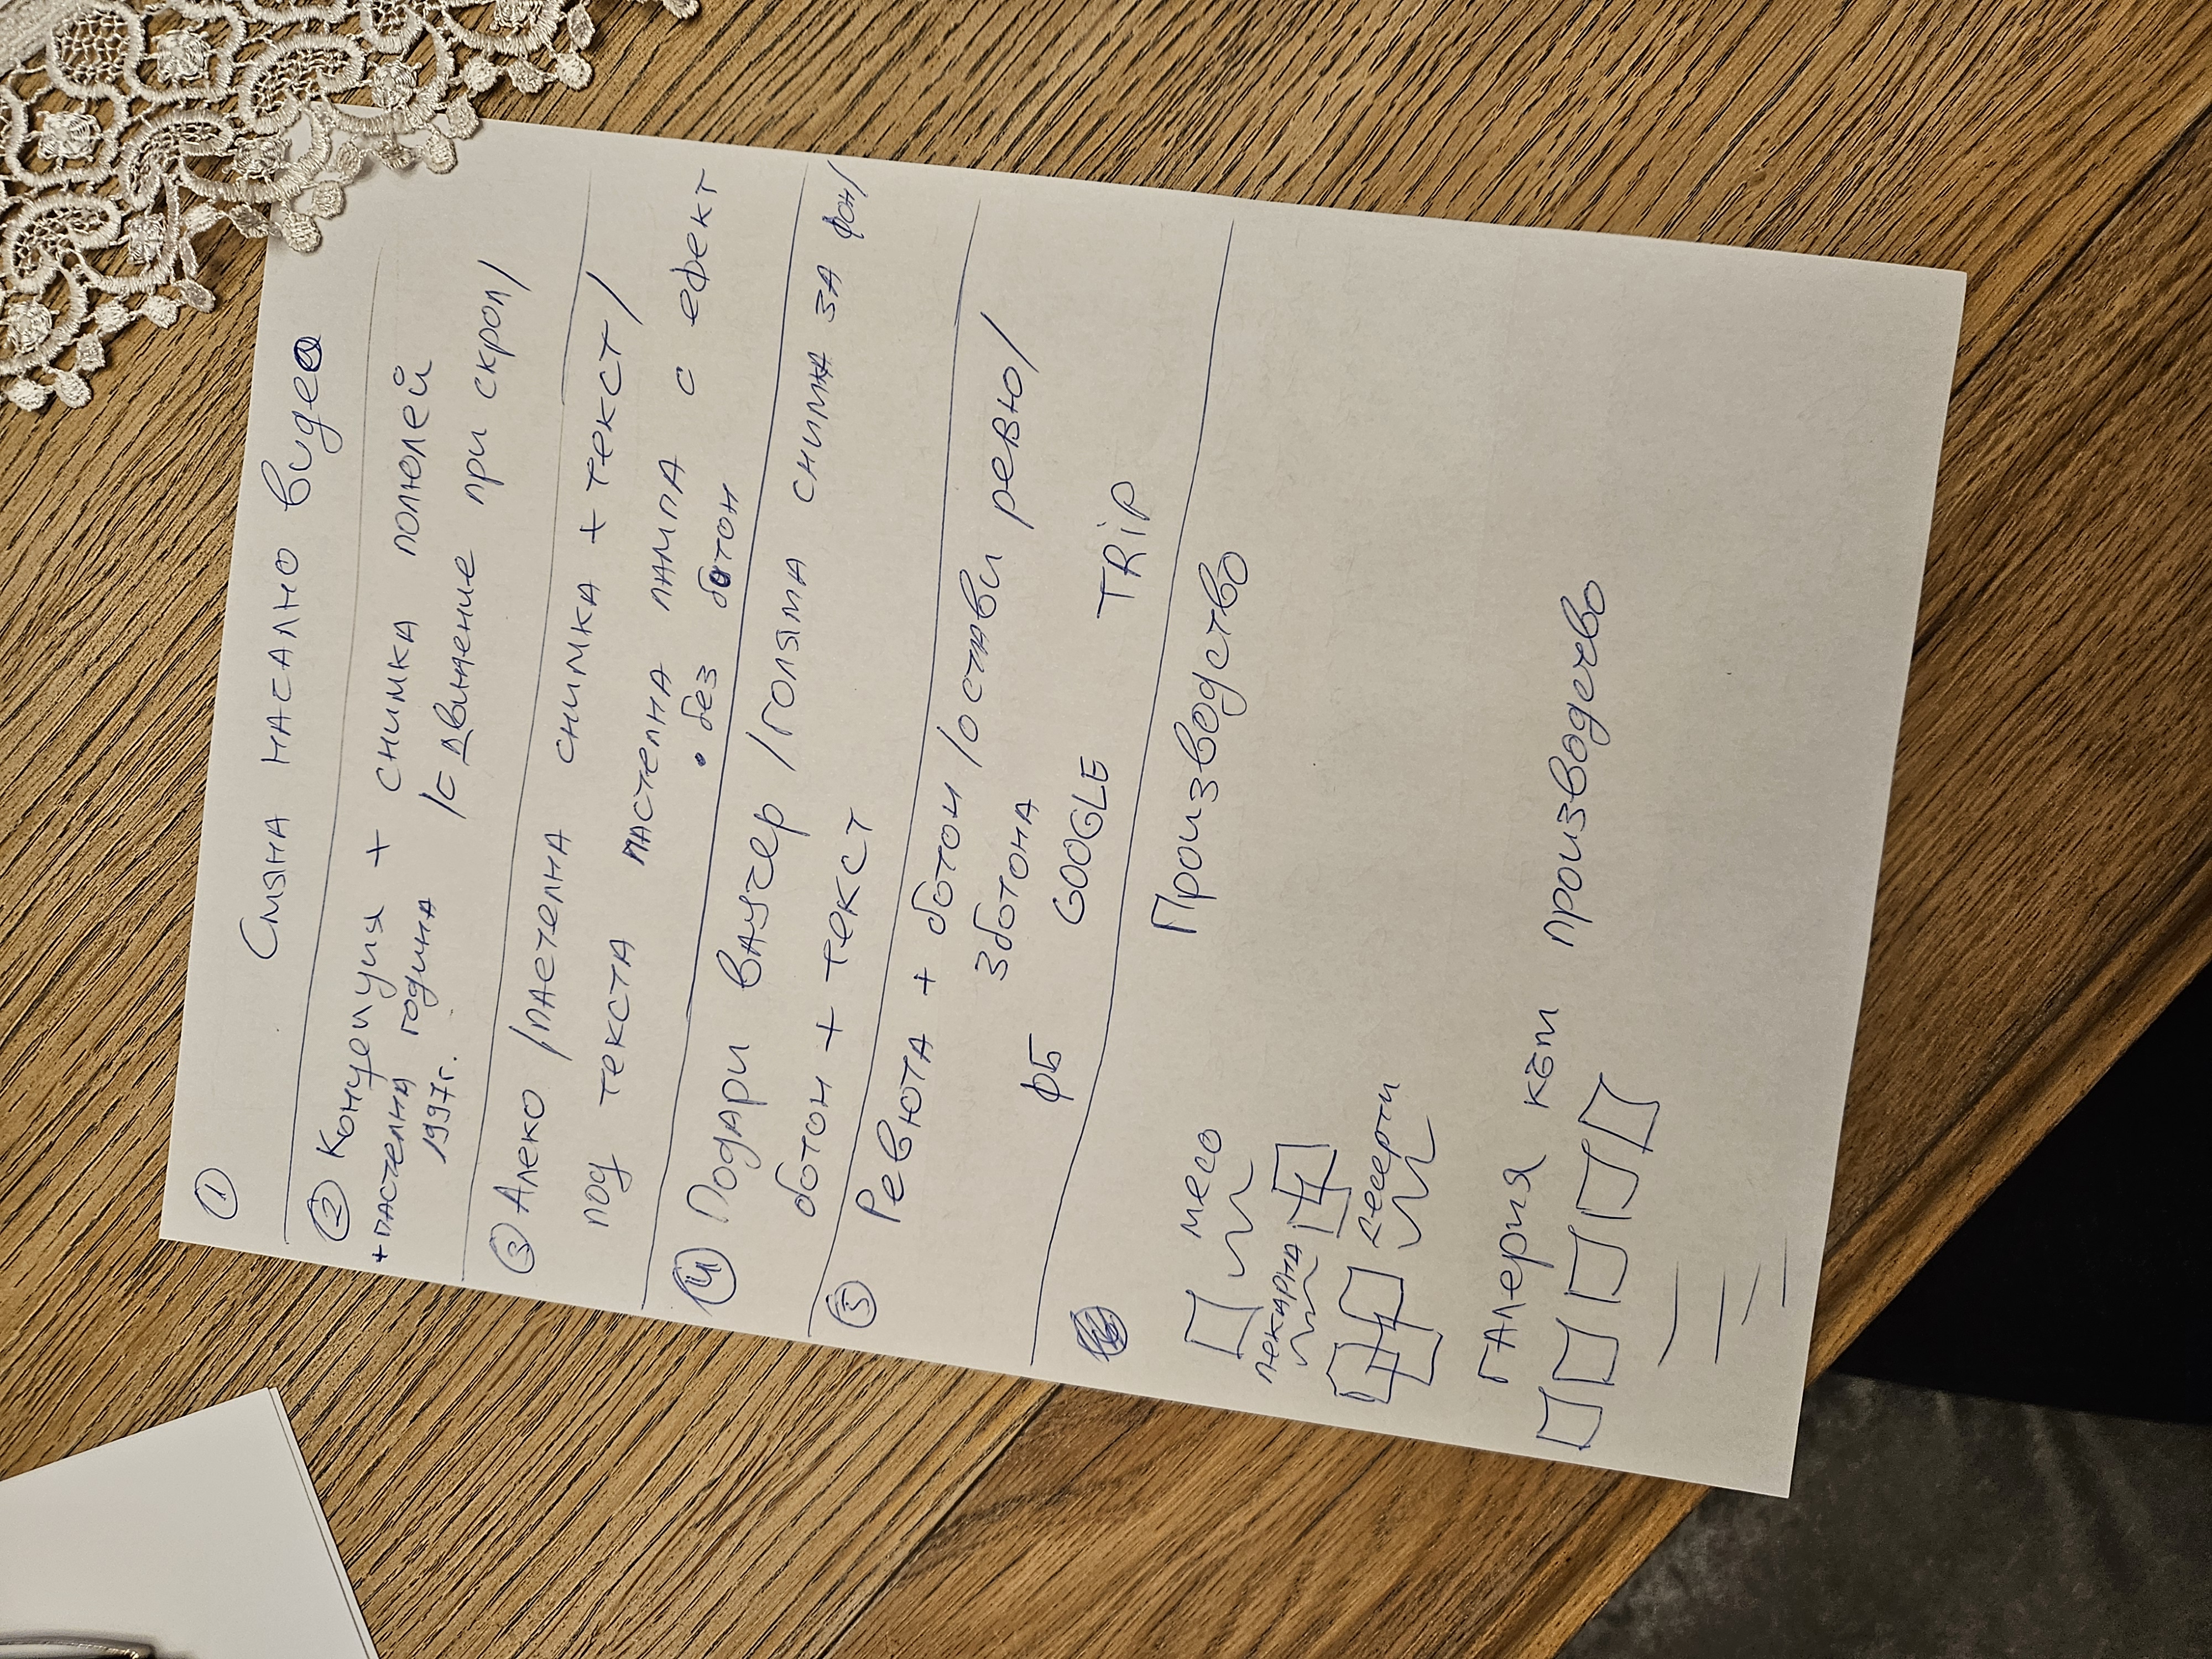 ① Смяна насално видео
② Концепция + снимка полюлей
+ пастелна година /с движение при скрол/
1997г.
③ Алеко /пастелна снимка + текст/
под текста пастелна лампа с ефект
• без бутон
④ Подари ваучер /голяма снимка за фон/
ботон + текст
⑤ Ревюта + ботон /остави ревю/
3 ботона
ФБ GOOGLE TRiP
Производство
месо
пекарна
десерти
Галерия към производство